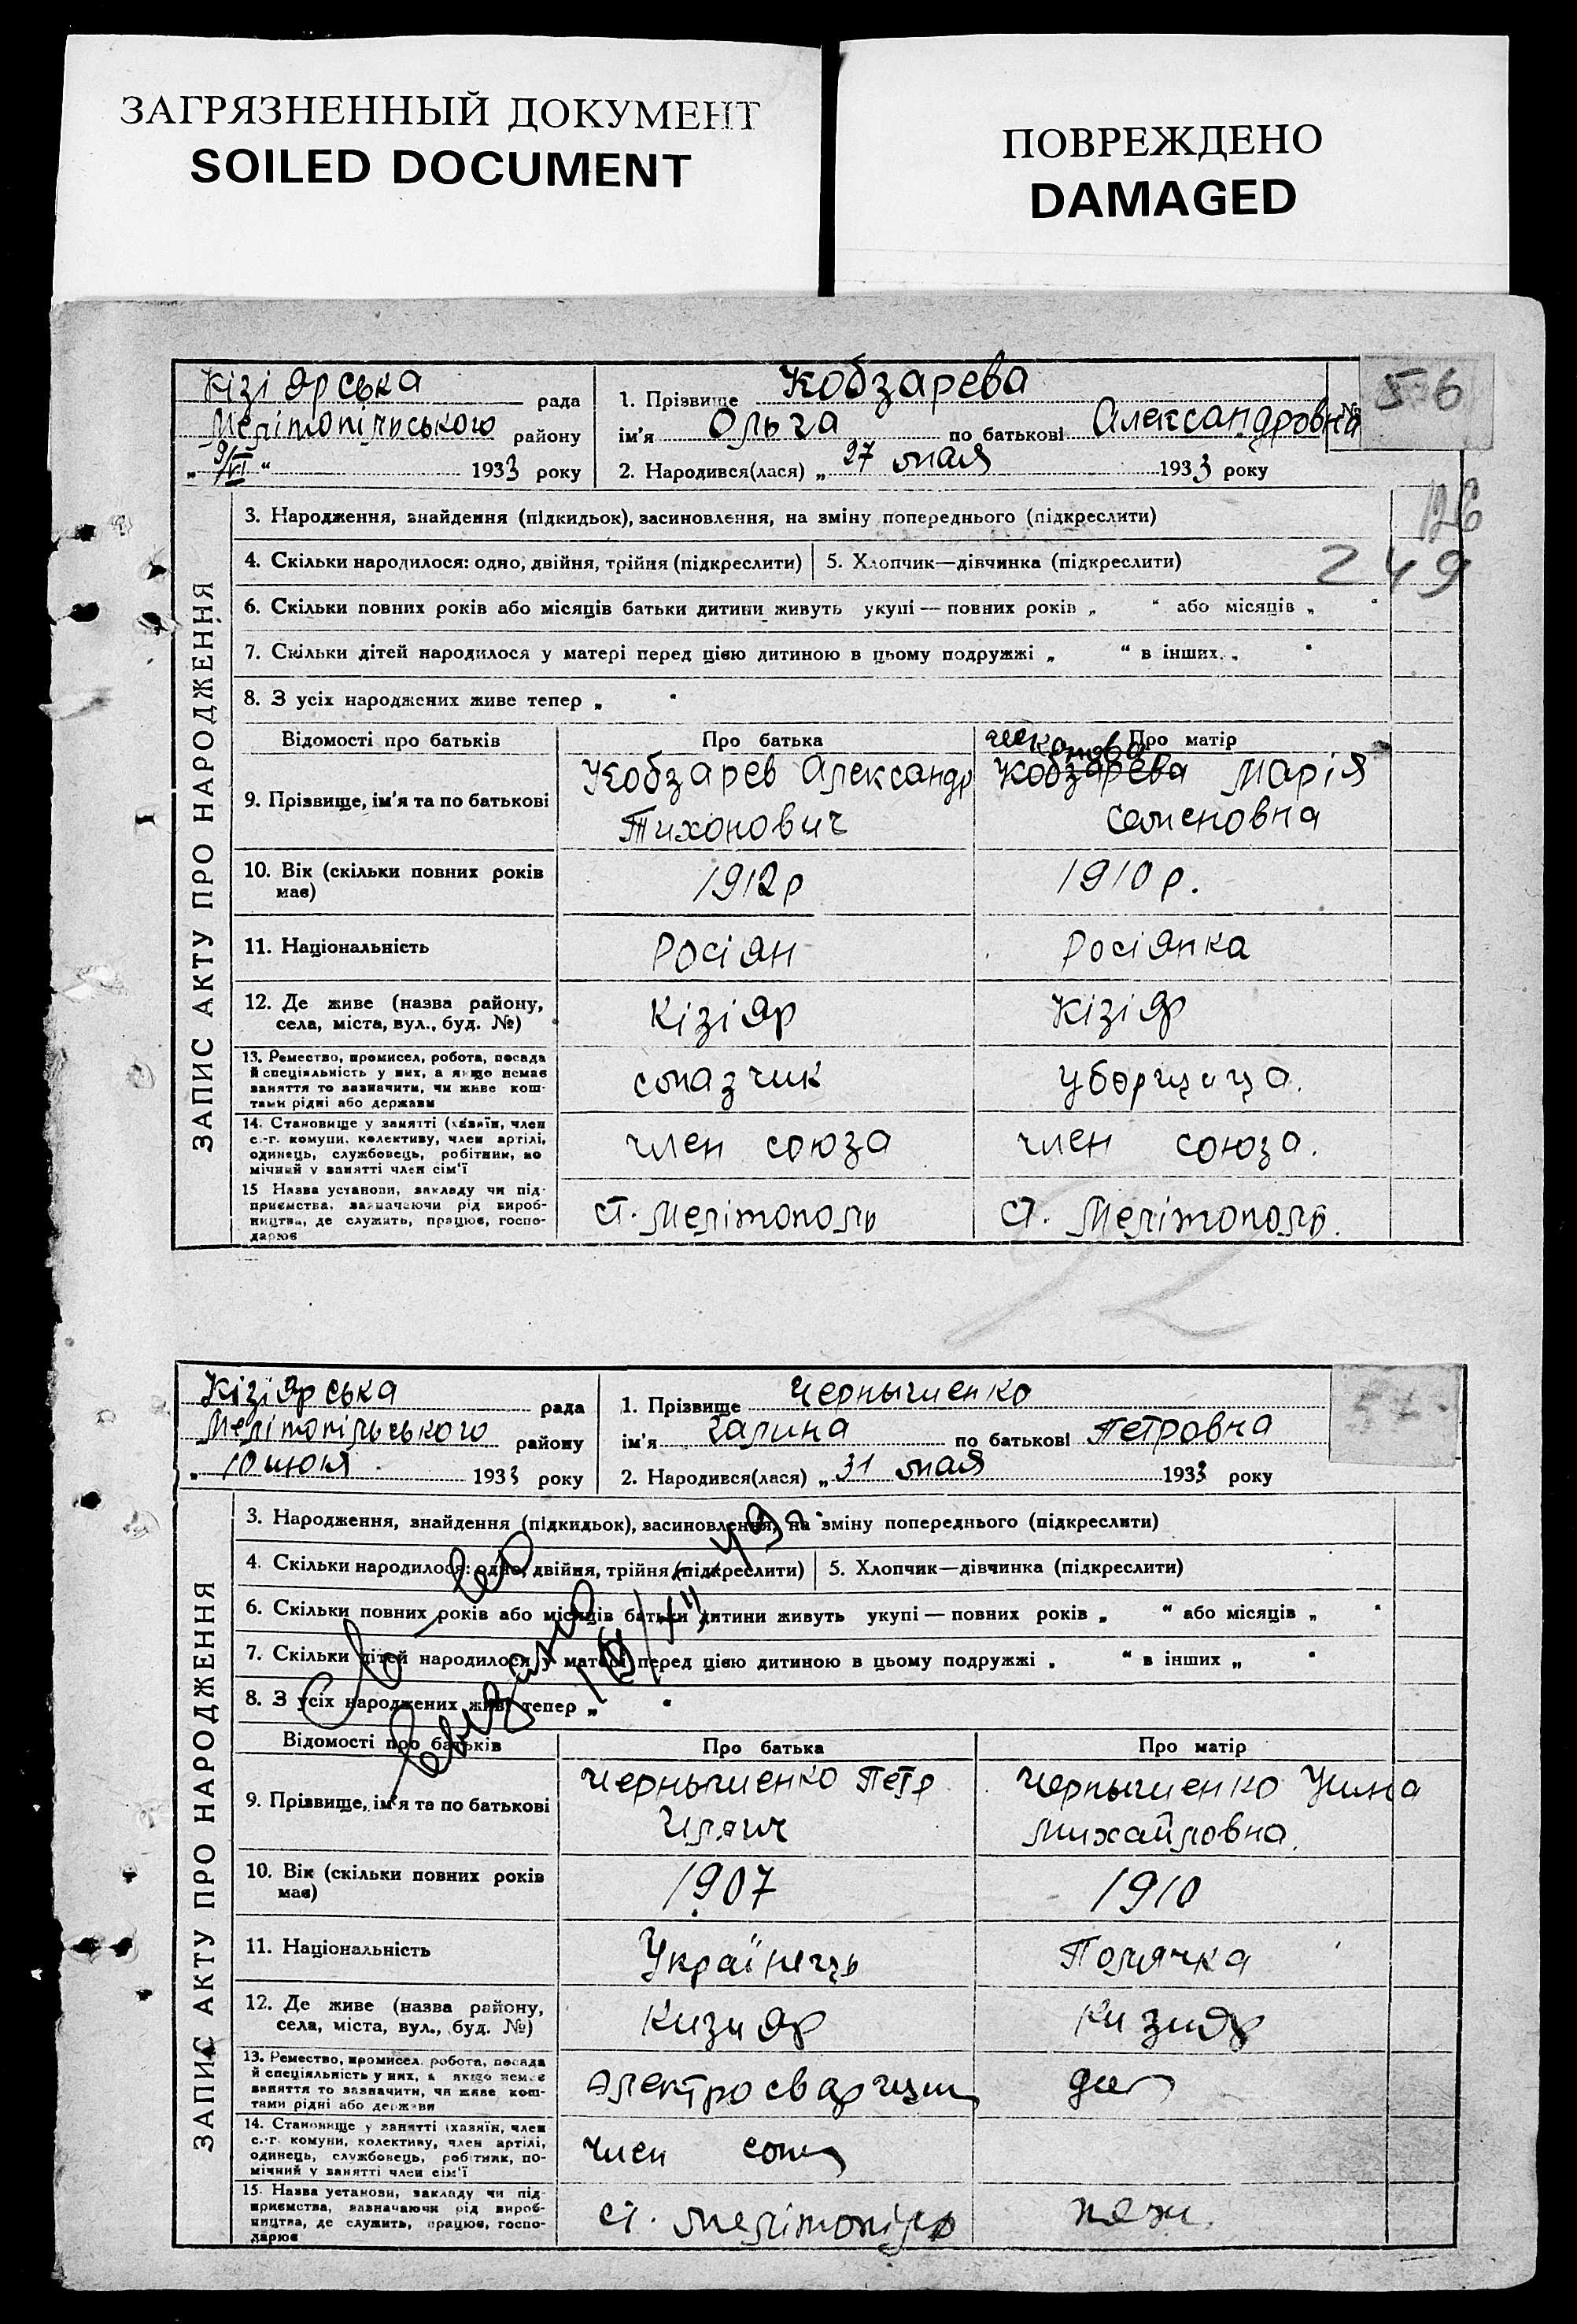 ЗАГРЯЗНЕННЫЙ ДОКУМЕНТ
SOILED DOCUMENT
ПОВРЕЖДЕНО
DAMAGED
Кізіярська рада
Мелітопільського району
„ 9/VI “ 1933 року
1. Прізвище Кобзарева
ім'я Ольга по батькові Александровна
2. Народився(лася) „ 27 мая 1933 року
№
56
126
249
ЗАПИС АКТУ ПРО НАРОДЖЕННЯ
3. Народження, знайдення (підкидьок), засиновлення, на зміну попереднього (підкреслити)
4. Скільки народилося: одно, двійня, трійня (підкреслити) 5. Хлопчик—дівчинка (підкреслити)
6. Скільки повних років або місяців батьки дитини живуть укупі — повних років „ “ або місяців „ “
7. Скільки дітей народилося у матері перед цією дитиною в цьому подружжі „ “ в інших „ “
8. З усіх народжених живе тепер „ “
Відомості про батьків Про батька Про матір
9. Прізвище, ім'я та по батькові
Кобзарев Александр
Тихонович
Кобзарева Марія
Семеновна
10. Вік (скільки повних років
має)
1912р
1910р.
11. Національність
Росіян
Росіянка
12. Де живе (назва району,
села, міста, вул., буд. №)
Кізіяр
Кізіяр
13. Ремество, промисел, робота, посада
й спеціяльність у них, а якщо немає
заняття то зазначити, чи живе кош-
тами рідні або держави
смазчик
уборщица.
14. Становище у занятті (хазяїн, член
с.-г. комуни, колективу, член артілі,
одинець, службовець, робітник, по
мічний у занятті член сім'ї
член союза
член союза.
15 Назва установи, закладу чи під-
приємства, зазначаючи рід вироб-
ництва, де служить, працює, госпо-
дарює
ст. Мелітополь
ст. Мелітополь.
92
Кізіярська рада
Мелітопільського району
„ 10 июня 1933 року
1. Прізвище Чернышенко
ім'я Галина по батькові Петровна
2. Народився(лася) „ 31 мая 1933 року
57
ЗАПИС АКТУ ПРО НАРОДЖЕННЯ
3. Народження, знайдення (підкидьок), засиновлення, на зміну попереднього (підкреслити)
4. Скільки народилося: одно, двійня, трійня (підкреслити) 5. Хлопчик—дівчинка (підкреслити)
6. Скільки повних років або місяців батьки дитини живуть укупі — повних років „ “ або місяців „ “
7. Скільки дітей народилося у матері перед цією дитиною в цьому подружжі „ “ в інших „ “
8. З усіх народжених живе тепер „ “
Відомості про батьків Про батька Про матір
9. Прізвище, ім'я та по батькові
Чернышенко Петр
Ильич
Чернышенко
Михайловна
10. Вік (скільки повних років
має)
1907
1910
11. Національність
Українець
Полячка
12. Де живе (назва району,
села, міста, вул., буд. №)
Кизияр
Кизияр
13. Ремество, промисел, робота, посада
й спеціяльність у них, а якщо немає
заняття то зазначити, чи живе кош-
тами рідні або держави
електросварщик
14. Становище у занятті (хазяїн, член
с.-г. комуни, колективу, член артілі,
одинець, службовець, робітник, по-
мічний у занятті член сім'ї
член союз
15. Назва установи, закладу чи під-
приємства, зазначаючи рід вироб-
ництва, де служить, працює, госпо-
дарює
ст. Мелітопіль